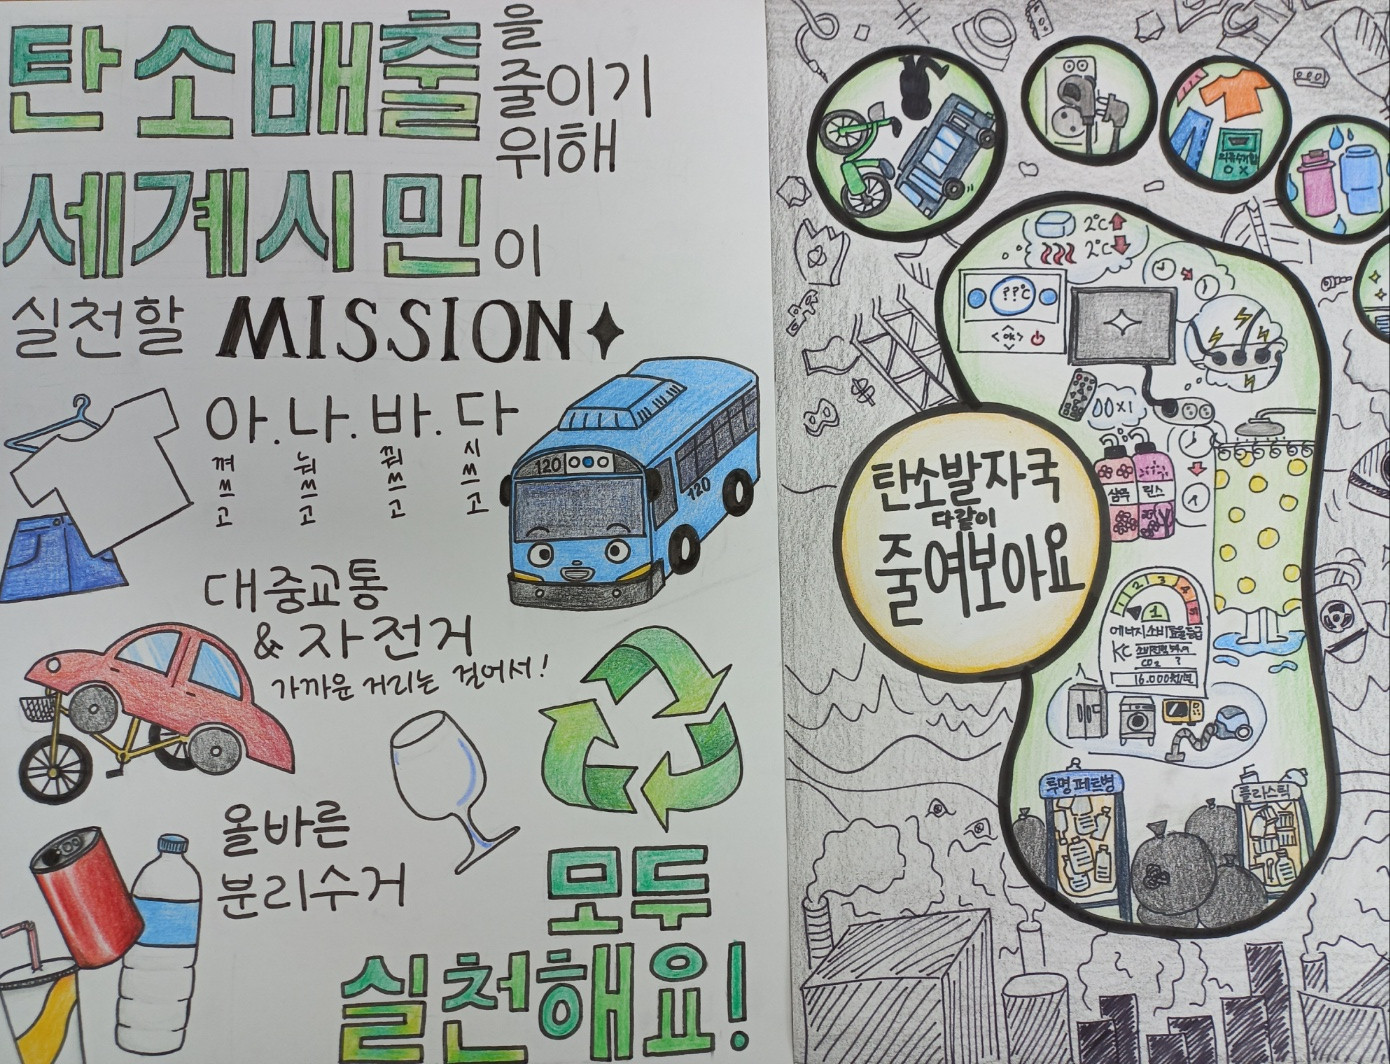 탄소배출을
줄이기
위해
세계시민이
실천할 MISSION
아.나.바.다
껴쓰고 눠쓰고 꿔쓰고 시쓰고
120
120
대중교통
& 자전거
가까운 거리는 걸어서!
올바른
분리수거
모두
실천해요!
의류수거함
O X
2°C
2°C
??°C
<ok>
00x1
탄소발자국
다같이
줄여보아요
샴푸 린스
1 2 3 4 5
1
에너지소비효율등급
KC
CO₂ ?
16.000원/년
투명페트병
플라스틱